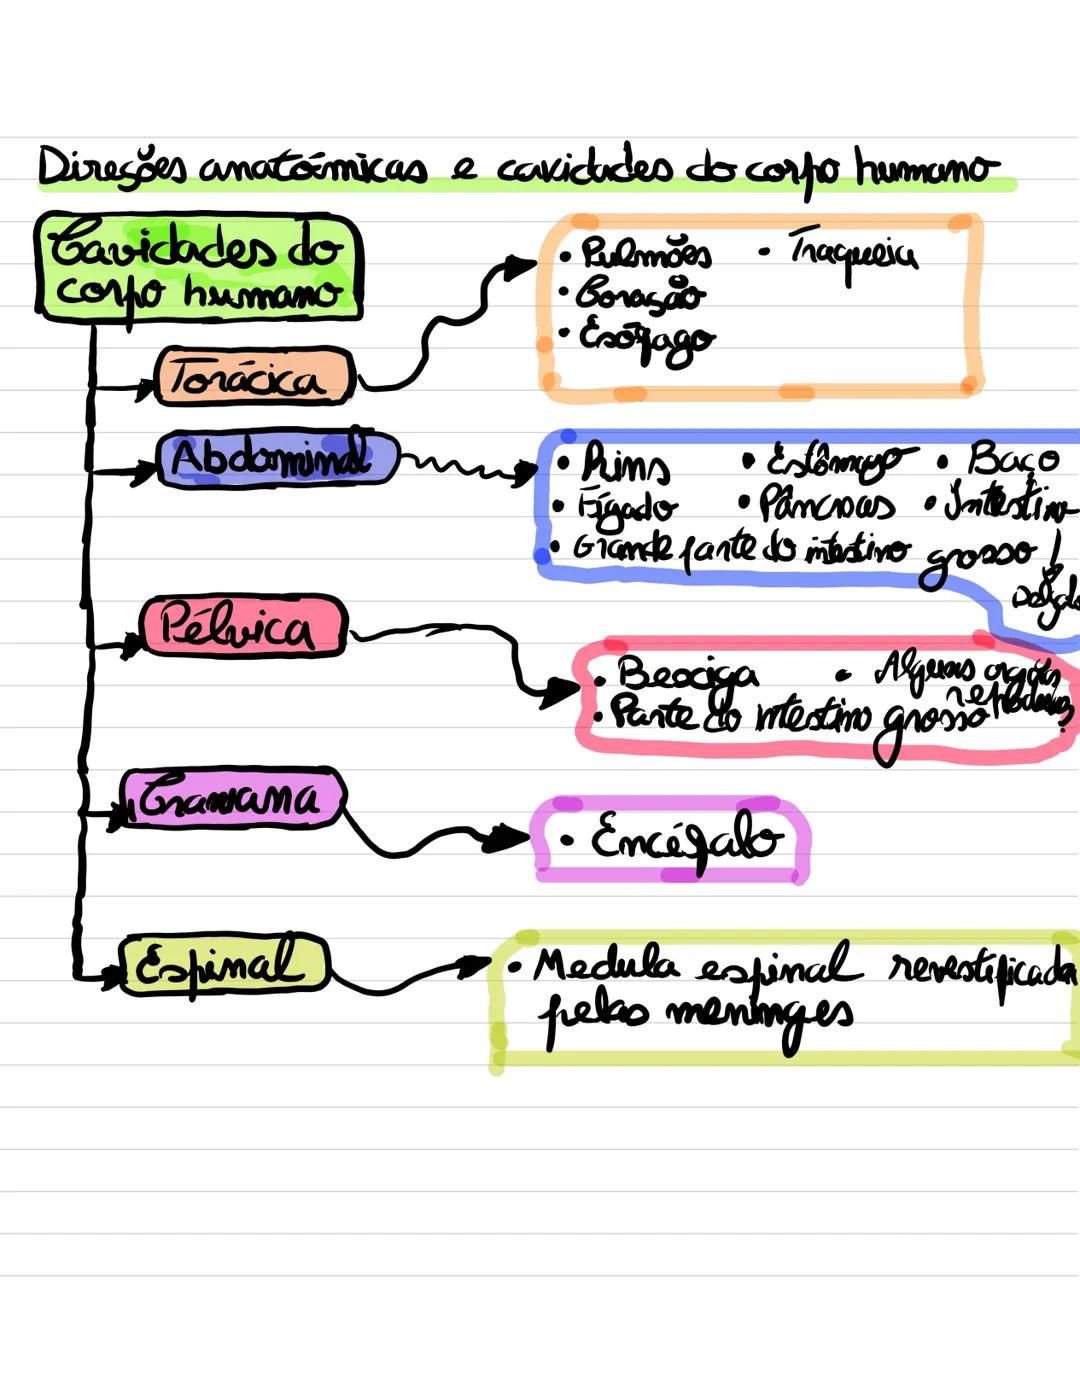 Direções anatómicas e cavidades do corpo humano
Cavidades do
corpo humano
• Pulmões • Traqueia
• Coração
• Esófago
Torácica
Abdominal
• Rins • Estômago • Baço
• Fígado • Pâncreas • Intestino
• Grande parte do intestino grosso
delgado
Pélvica
• Bexiga • Alguns orgãos
reprodutores
• Parte do intestino grosso
Craniana
• Encéfalo
Espinal
• Medula espinal revestificada
pelas meninges